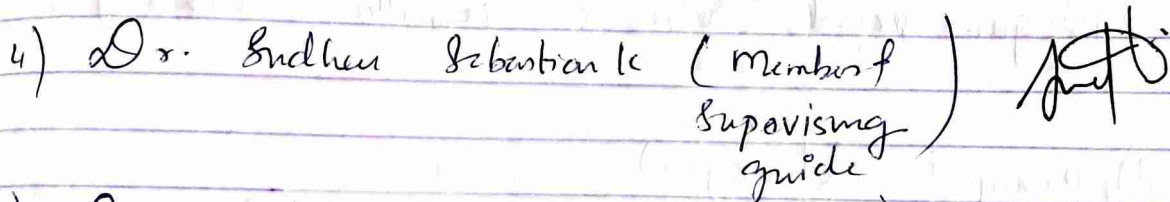 4) Dr. Sudheu Sebastian K (Member &
Supervising
guide)